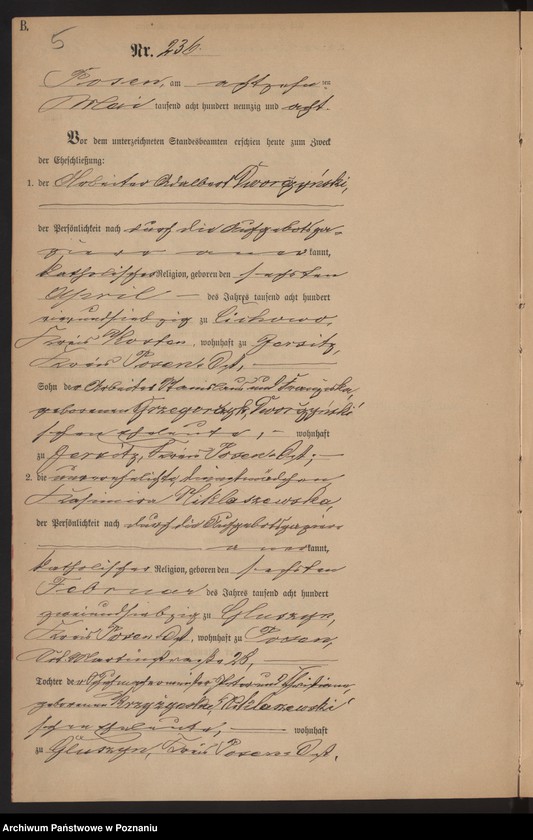 B.
5
Nr. 236.
Posen, am achtzehnten
Mai tausend acht hundert neunzig und acht.
Vor dem unterzeichneten Standesbeamten erschien heute zum Zweck
der Eheschließung:
1. der Arbeiter Adalbert Dworzyński,
der Persönlichkeit nach durch die Aufgebotspa-
piere anerkannt,
katholischer Religion, geboren den sechsten
April des Jahres tausend acht hundert
vierundsiebzig zu Cichowo,
Kreis Kosten, wohnhaft zu Gersitz,
Kreis Posen-Ost,
Sohn der Arbeiter Stanislaus und Franziska,
geborenen Grzegorczyk, Dworzyński'
schen Eheleute, wohnhaft
zu Gersitz, Kreis Posen-Ost;
2. die unverehelichte Dienstmädchen
Kasimira Niklaszewska,
der Persönlichkeit nach durch die Aufgebotspapiere
anerkannt,
katholischer Religion, geboren den sechsten
Februar des Jahres tausend acht hundert
zweiundsiebzig zu Gluszyn,
Kreis Posen-Ost, wohnhaft zu Posen,
Skt. Martinstraße 28,
Tochter der Schuhmachermeister Peter und
geborenen Krzyżyoska, Niklaszewski'
schen Eheleute, wohnhaft
zu Gluszyn, Kreis Posen-Ost.
Archiwum Państwowe w Poznaniu